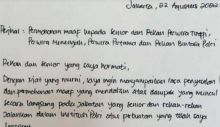 Jakarta, 22 Agustus 2022
Perihal : Permohonan maaf kepada Senior dan Rekan Perwira Tinggi,
Perwira Menengah, Perwira Pertama dan Rekan Bintara Polri
Rekan dan Senior yang saya hormati,
Dengan niat yang murni, saya ingin menyampaikan rasa penyesalan
dan permohonan maaf yang mendalam atas dampak yang muncul
secara langsung pada jabatan yang senior dan rekan-rekan
jalankan dalam institusi Polri atas perbuatan yang telah saya